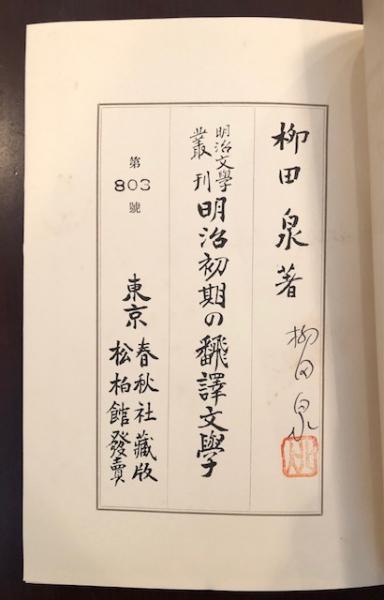 柳田泉著
柳田泉
明治文學
叢刊
明治初期の飜譯文學
第
803
號
東京
春秋社藏版
松柏館發賣